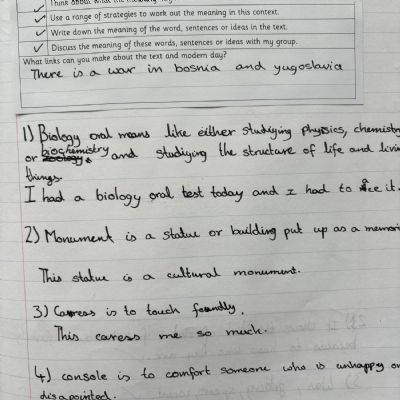 Think about what the
Use a range of strategies to work out the meaning in this context.
Write down the meaning of the word, sentences or ideas in the text.
Discuss the meaning of these words, sentences or ideas with my group.
What links can you make about the text and modern day?
There is a war in bosnia and yugoslavia
1) Biology oral means like either studiying physics, chemistry
or biochemistry and studiying the structure of life and livin
things.
I had a biology oral test today and I had to ace it.
2) Monument is a statue or building put up as a memori
This statue is a cultural monument.
3) Caress is to touch foundly.
This caress me so much.
4) console is to comfort someone who is unhappy or
disapointed.